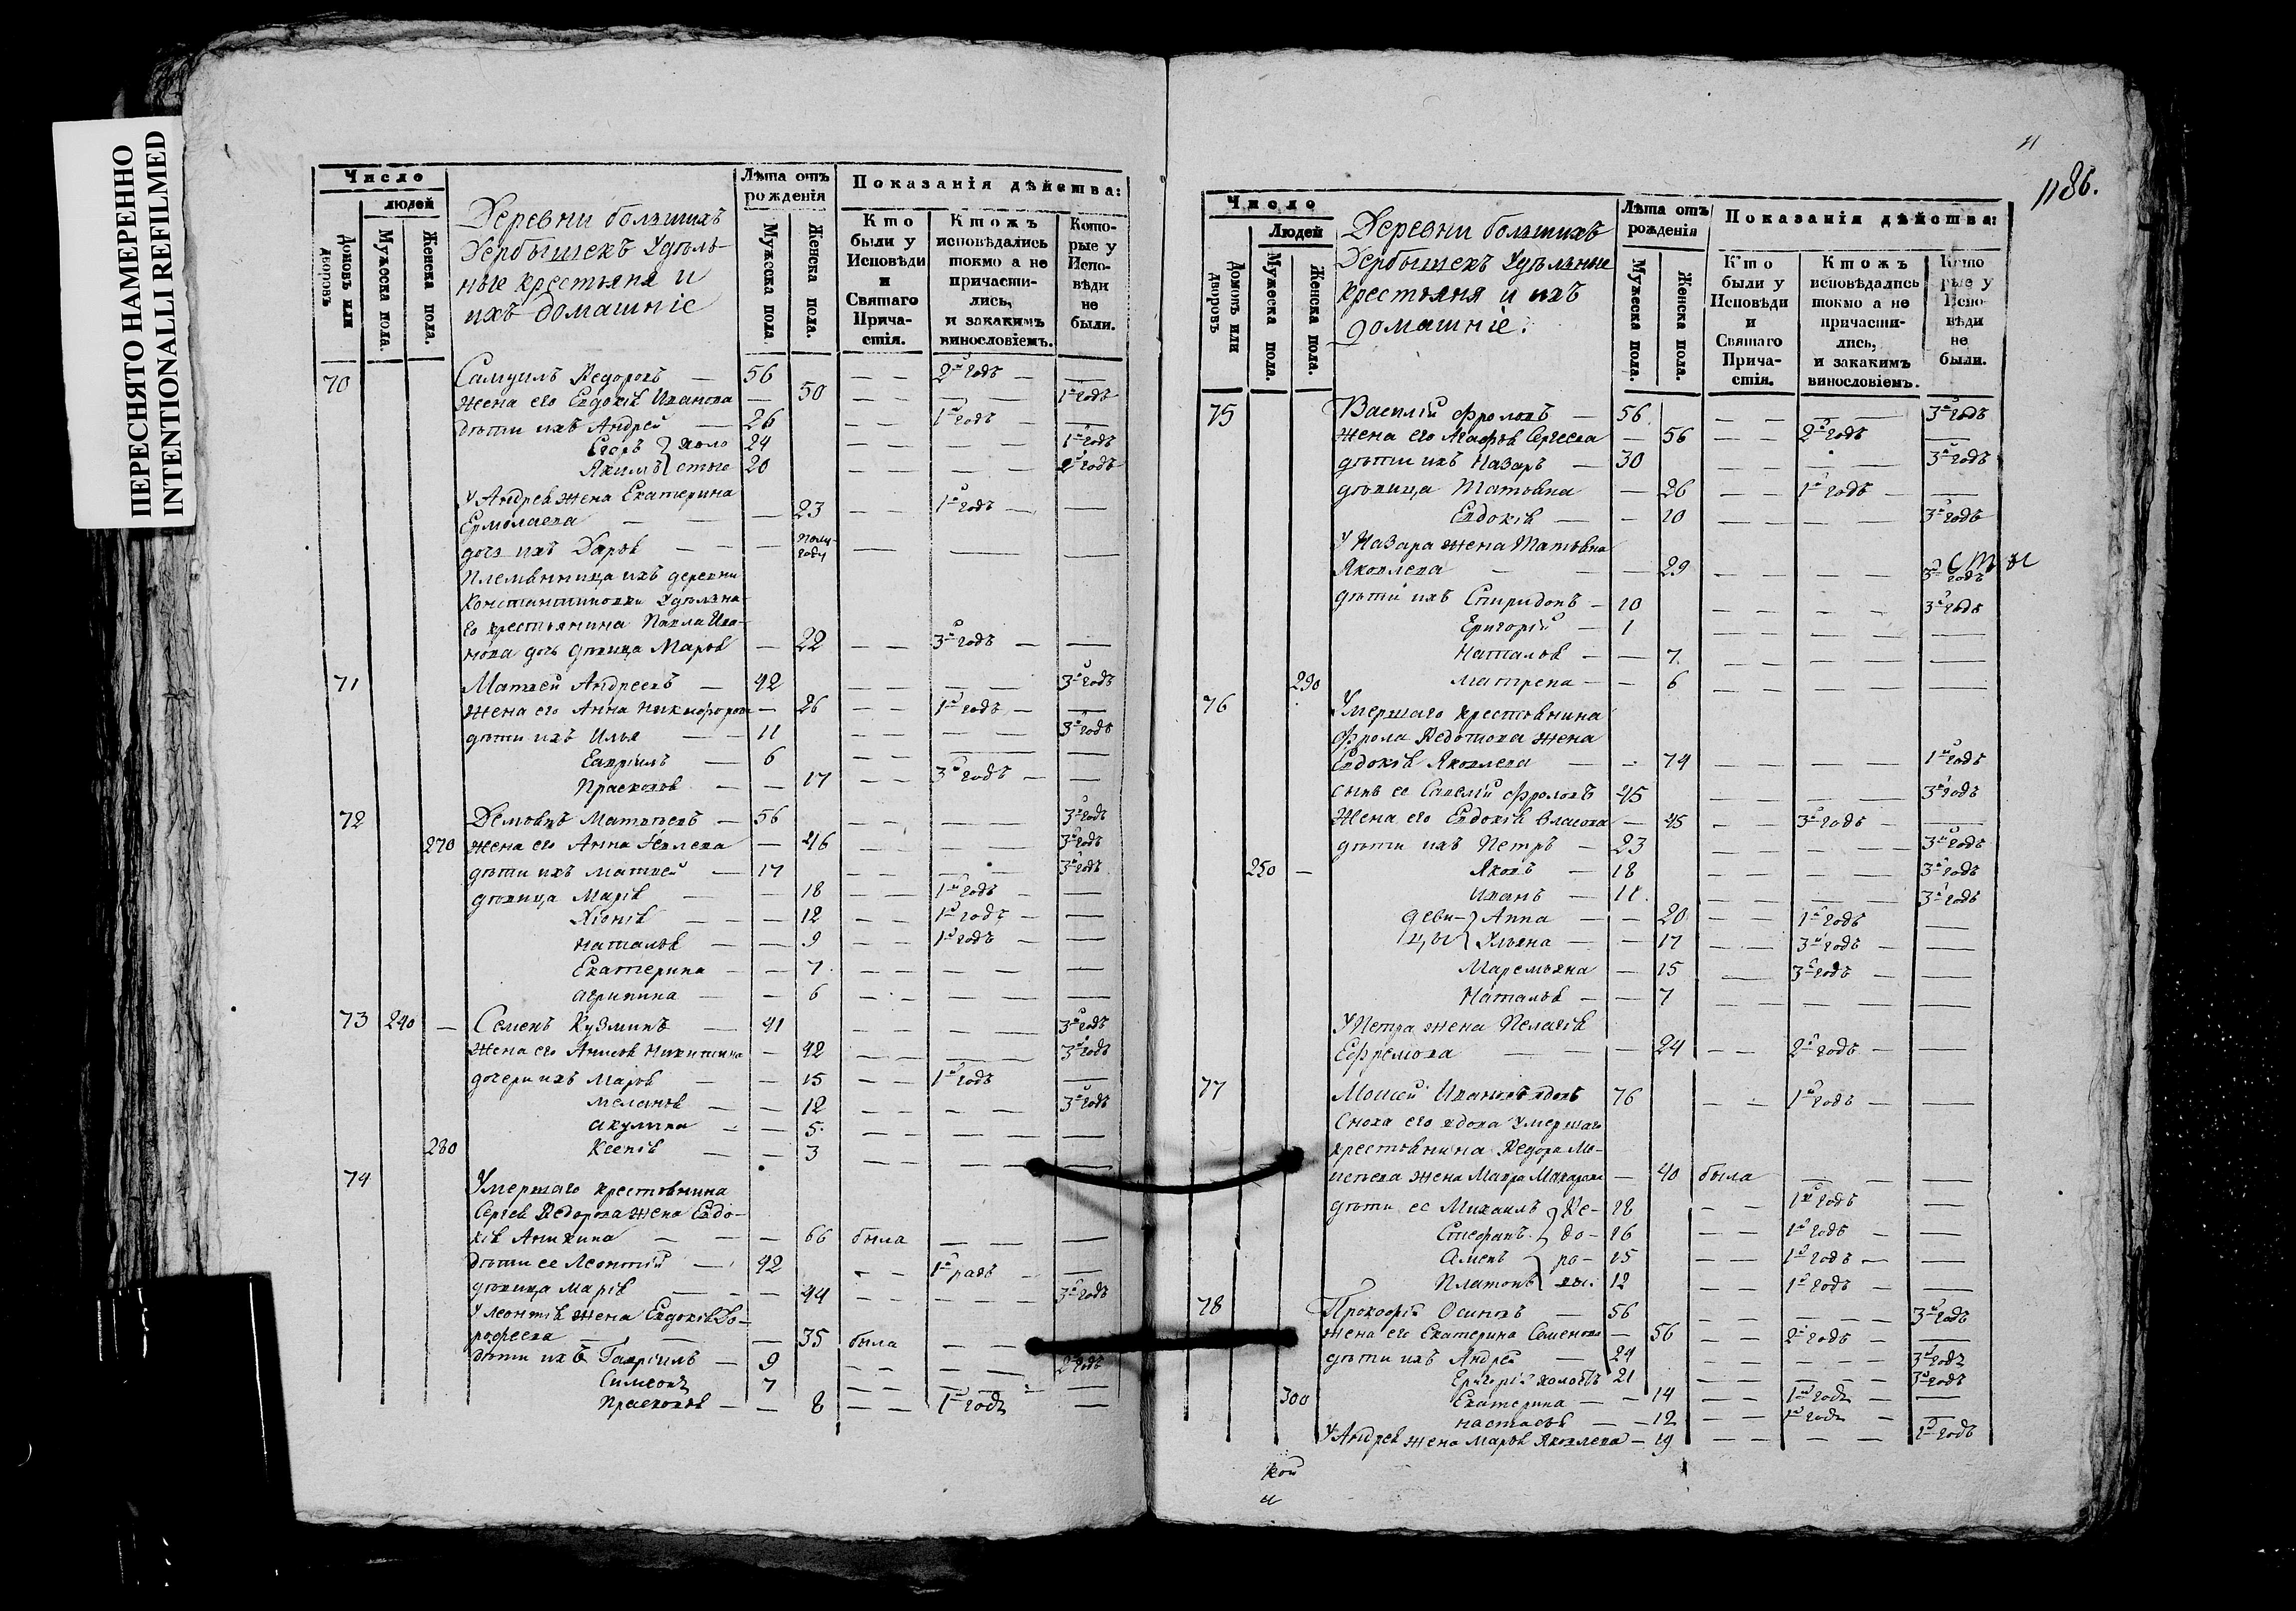 ПЕРЕСНЯТО НАМЕРЕННО
INTENTIONALLI REFILMED
Число
людей
Домовъ или дворовъ
Мужеска пола.
Женска пола.
Деревни большихъ
Дербышекъ Удѣль-
ные крестьяня и
ихъ домашніе
Лѣта отъ рожденія
Мужеска пола
Женска пола.
Показанія дѣйства:
Кто были у Исповѣди и Святаго Прича-стія.
Ктожъ исповѣдались токмо а не причасти-лись, и закакимъ винословіемъ.
Кото-рые у Испо-вѣди не были.
70 Самуилъ Ѳедоровъ — 56 — — 2й годъ — —
жена его Евдокія Иванова — 50 — — — 1й годъ
дѣти ихъ Андрей — 26 — — 1й годъ — —
Егоръ } холо 24 — — — — 1й годъ
Якимъ } стые 20 — — — — 2й годъ
У Андрея жена Екатерина
Ермолаева — — — 23 — — 1й годъ — —
дочь ихъ Дарья — — — полу-годы — — —
Племянница ихъ деревни
Константиновки Удѣльна-
го крестьянина Павла Ива-
нова дочь дѣвица Марья — 22 — — 3й годъ — —
71 Матвей Андреевъ — 42 — — — — 3й годъ
жена его Анна Никифорова — 26 — — 1й годъ — —
дѣти ихъ Илья — — 11 — — — — 3й годъ
Гавріилъ — 6 — — — —
Прасковья — — 17 — — 3й годъ — —
72 Демьянъ Матвѣевъ — 56 — — — — 3й годъ
270 жена его Анна — 46 — — — — 3й годъ
дѣти ихъ Матвей — 17 — — — — 3й годъ
дѣвица Марія — — 18 — — 1й годъ — —
Хіонія — — 12 — — 1й годъ — —
Наталья — — 9 — — 1й годъ — —
Екатерина — — 7 — — — — —
Агрипина — — 6 — — — — —
73 240 — Семенъ Кузминъ — 41 — — — — 3й годъ
жена его Анисья Никитина — 42 — — — — 3й годъ
дочери ихъ Марья — — 15 — — 1й годъ —
Меланья — — 12 — — — — 3й годъ
Акулина — — 5 — — — — —
280 Ксенія — — 3 — — — — —
74 Умершаго крестьянина
Сергея Ѳедорова жена Евдо-
кія Аникина — — — 66 была — — —
дѣти ее Леонтій — 42 — — 1й годъ — —
дѣвица Марія — — — 44 — — — — 3й годъ
У Леонтія жена Евдокія До-
рофеева — — — 35 была — —
дѣти ихъ Гавріилъ — 9 — — — — 2й годъ
Симеонъ 7 — — — —
Прасковья — — 8 — — 1й годъ —
1186.
Число
Людей
Домовъ или дворовъ
Мужеска пола.
Женска пола.
Деревни большихъ
Дербышекъ Удѣльные
крестьяня и ихъ
домашніе.
Лѣта отъ рожденія
Мужеска пола.
Женска пола.
Показанія дѣйства:
Кто были у Исповѣди и Святаго Прича-стія.
Ктожъ исповѣдались токмо а не причасти-лись, и закакимъ винословіемъ.
Кото рые у Испо-вѣди не были.
75 Василій Фроловъ — 56 — — — — 3й годъ
жена его Агафья Сергеева — 56 — — 2й годъ —
дѣти ихъ Назаръ — 30 — — — 3й годъ
дѣвица Татьяна — 26 — — 1й годъ — —
Евдокія — — 20 — — — — 3й годъ
У Назара жена Татьяна
Яковлева — — — 29 — — — — 3й годъ
дѣти ихъ Спиридонъ — 10 — — — 3й годъ
Григорій — 1 — — — — —
Наталья — — 7 — — — — —
290 Матрена — — 6 — — — — —
76 Умершаго крестьянина
Фрола Ѳедотова жена
Евдокія Яковлева — — 74 — — — — 1й годъ
сынъ ее Савелій Фроловъ 45 — — — — 3й годъ
жена его Евдокія Власова — 45 — — 3й годъ — —
дѣти ихъ Петръ — 23 — — — — 3й годъ
250 — Яковъ — 18 — — — — 3й годъ
Иванъ — 11 — — — — 3й годъ
деви- } Анна — — 20 — — 1й годъ —
цы } Ульяна — — 17 — — 3й годъ — —
Маремьяна — 15 — 3й годъ — —
Наталья — — 7 — — — — —
У Петра жена Пелагія
Ефремова — — — 24 — — 2й годъ — —
77 Моисей Ивановъ вдовъ 76 — — 1й годъ — —
сноха его вдова умершаго
крестьянина Ѳедора Мо-
исеева жена Мавра Макарова — 40 была — — —
дѣти ее Михаилъ } Ѳе- 18 — — 1й годъ —
Стефанъ } до- 16 — — 1й годъ — —
Семенъ } ро- 15 — — 1й годъ — —
Платонъ } вы. 12 — — 1й годъ — —
78 Прокофій Осиповъ — 56 — — — — 3й годъ
жена его Екатерина Семенова — 56 — — 2й годъ — —
дѣти ихъ Андрей — 24 — — — — 3й годъ
Григорій холостъ 21 — — — — 3й годъ
300 Екатерина — — 14 — — 1й годъ — —
Настасья — — 12 — — 1й годъ — —
У Андрея жена Марья Яковлева — 19 — — — — 1й годъ
кой
и